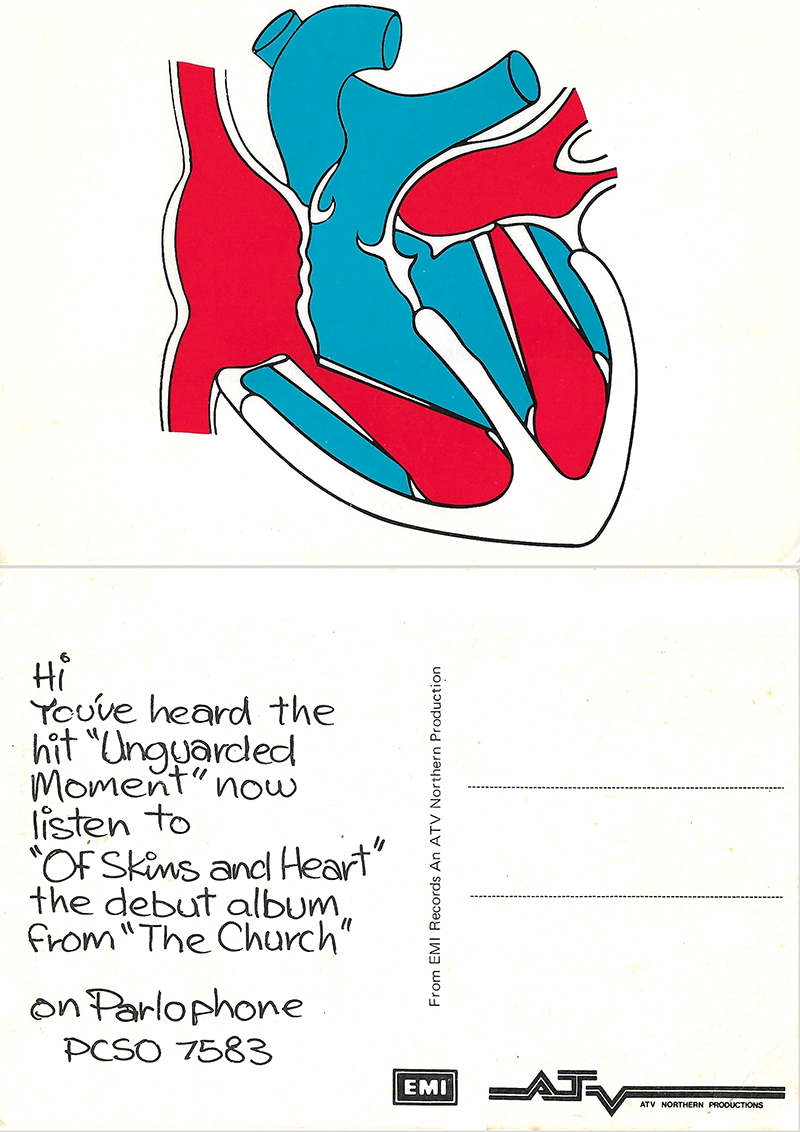 Hi
You've heard the
hit "Unguarded
Moment" now
listen to
"Of Skins and Heart"
the debut album
from "The Church"
on Parlophone
PCSO 7583
From EMI Records An ATV Northern Production
EMI
ATV
ATV NORTHERN PRODUCTIONS